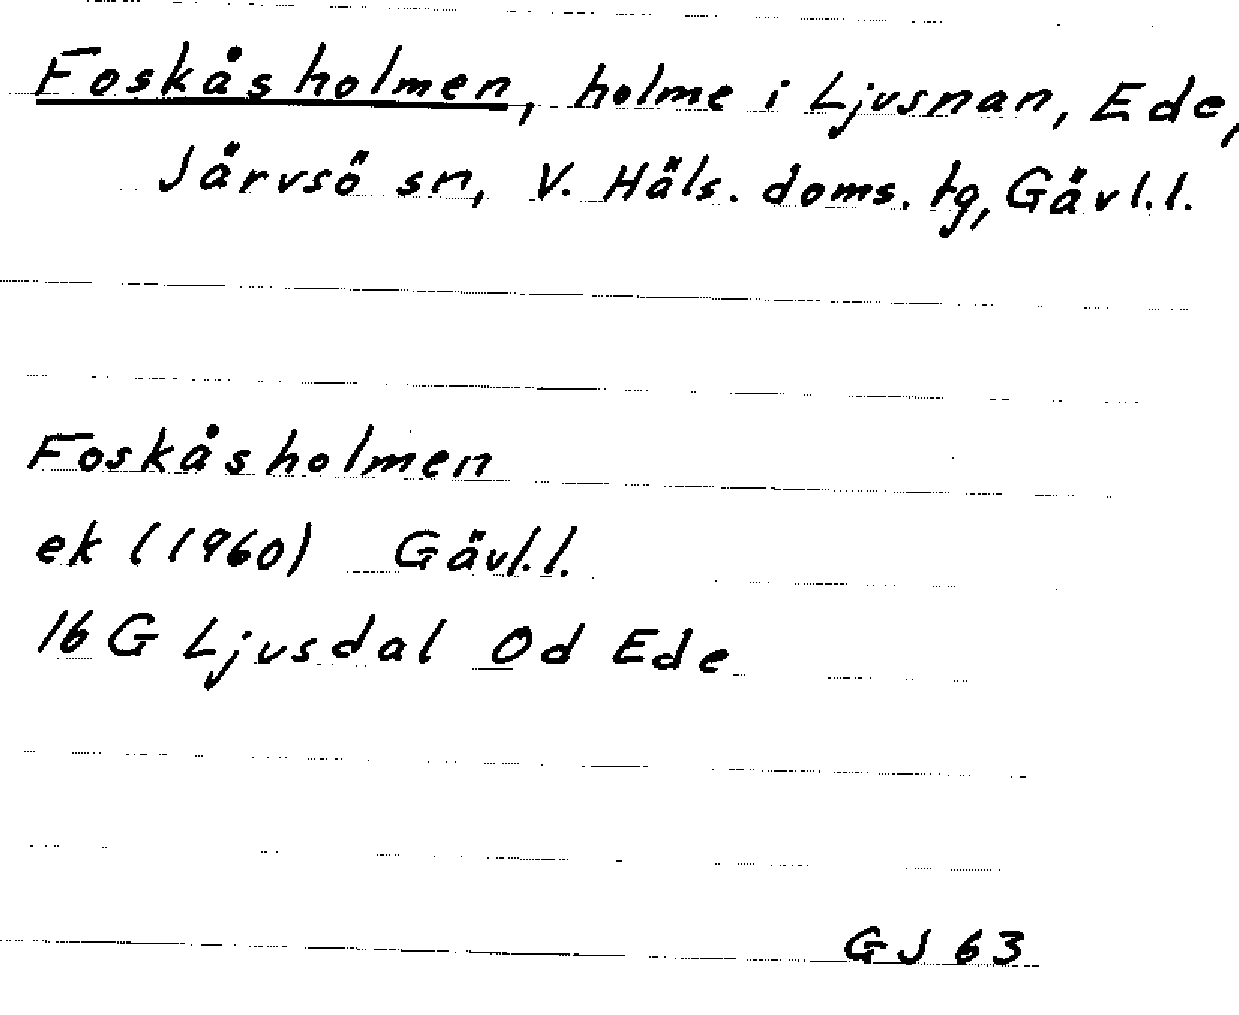 Foskåsholmen, holme i Ljusnan, Ede,
Järvsö sn, V. Häls. doms. tg, Gävl.l.
Foskåsholmen
ek (1960) Gävl.l.
16 G Ljusdal Od Ede
GJ 63